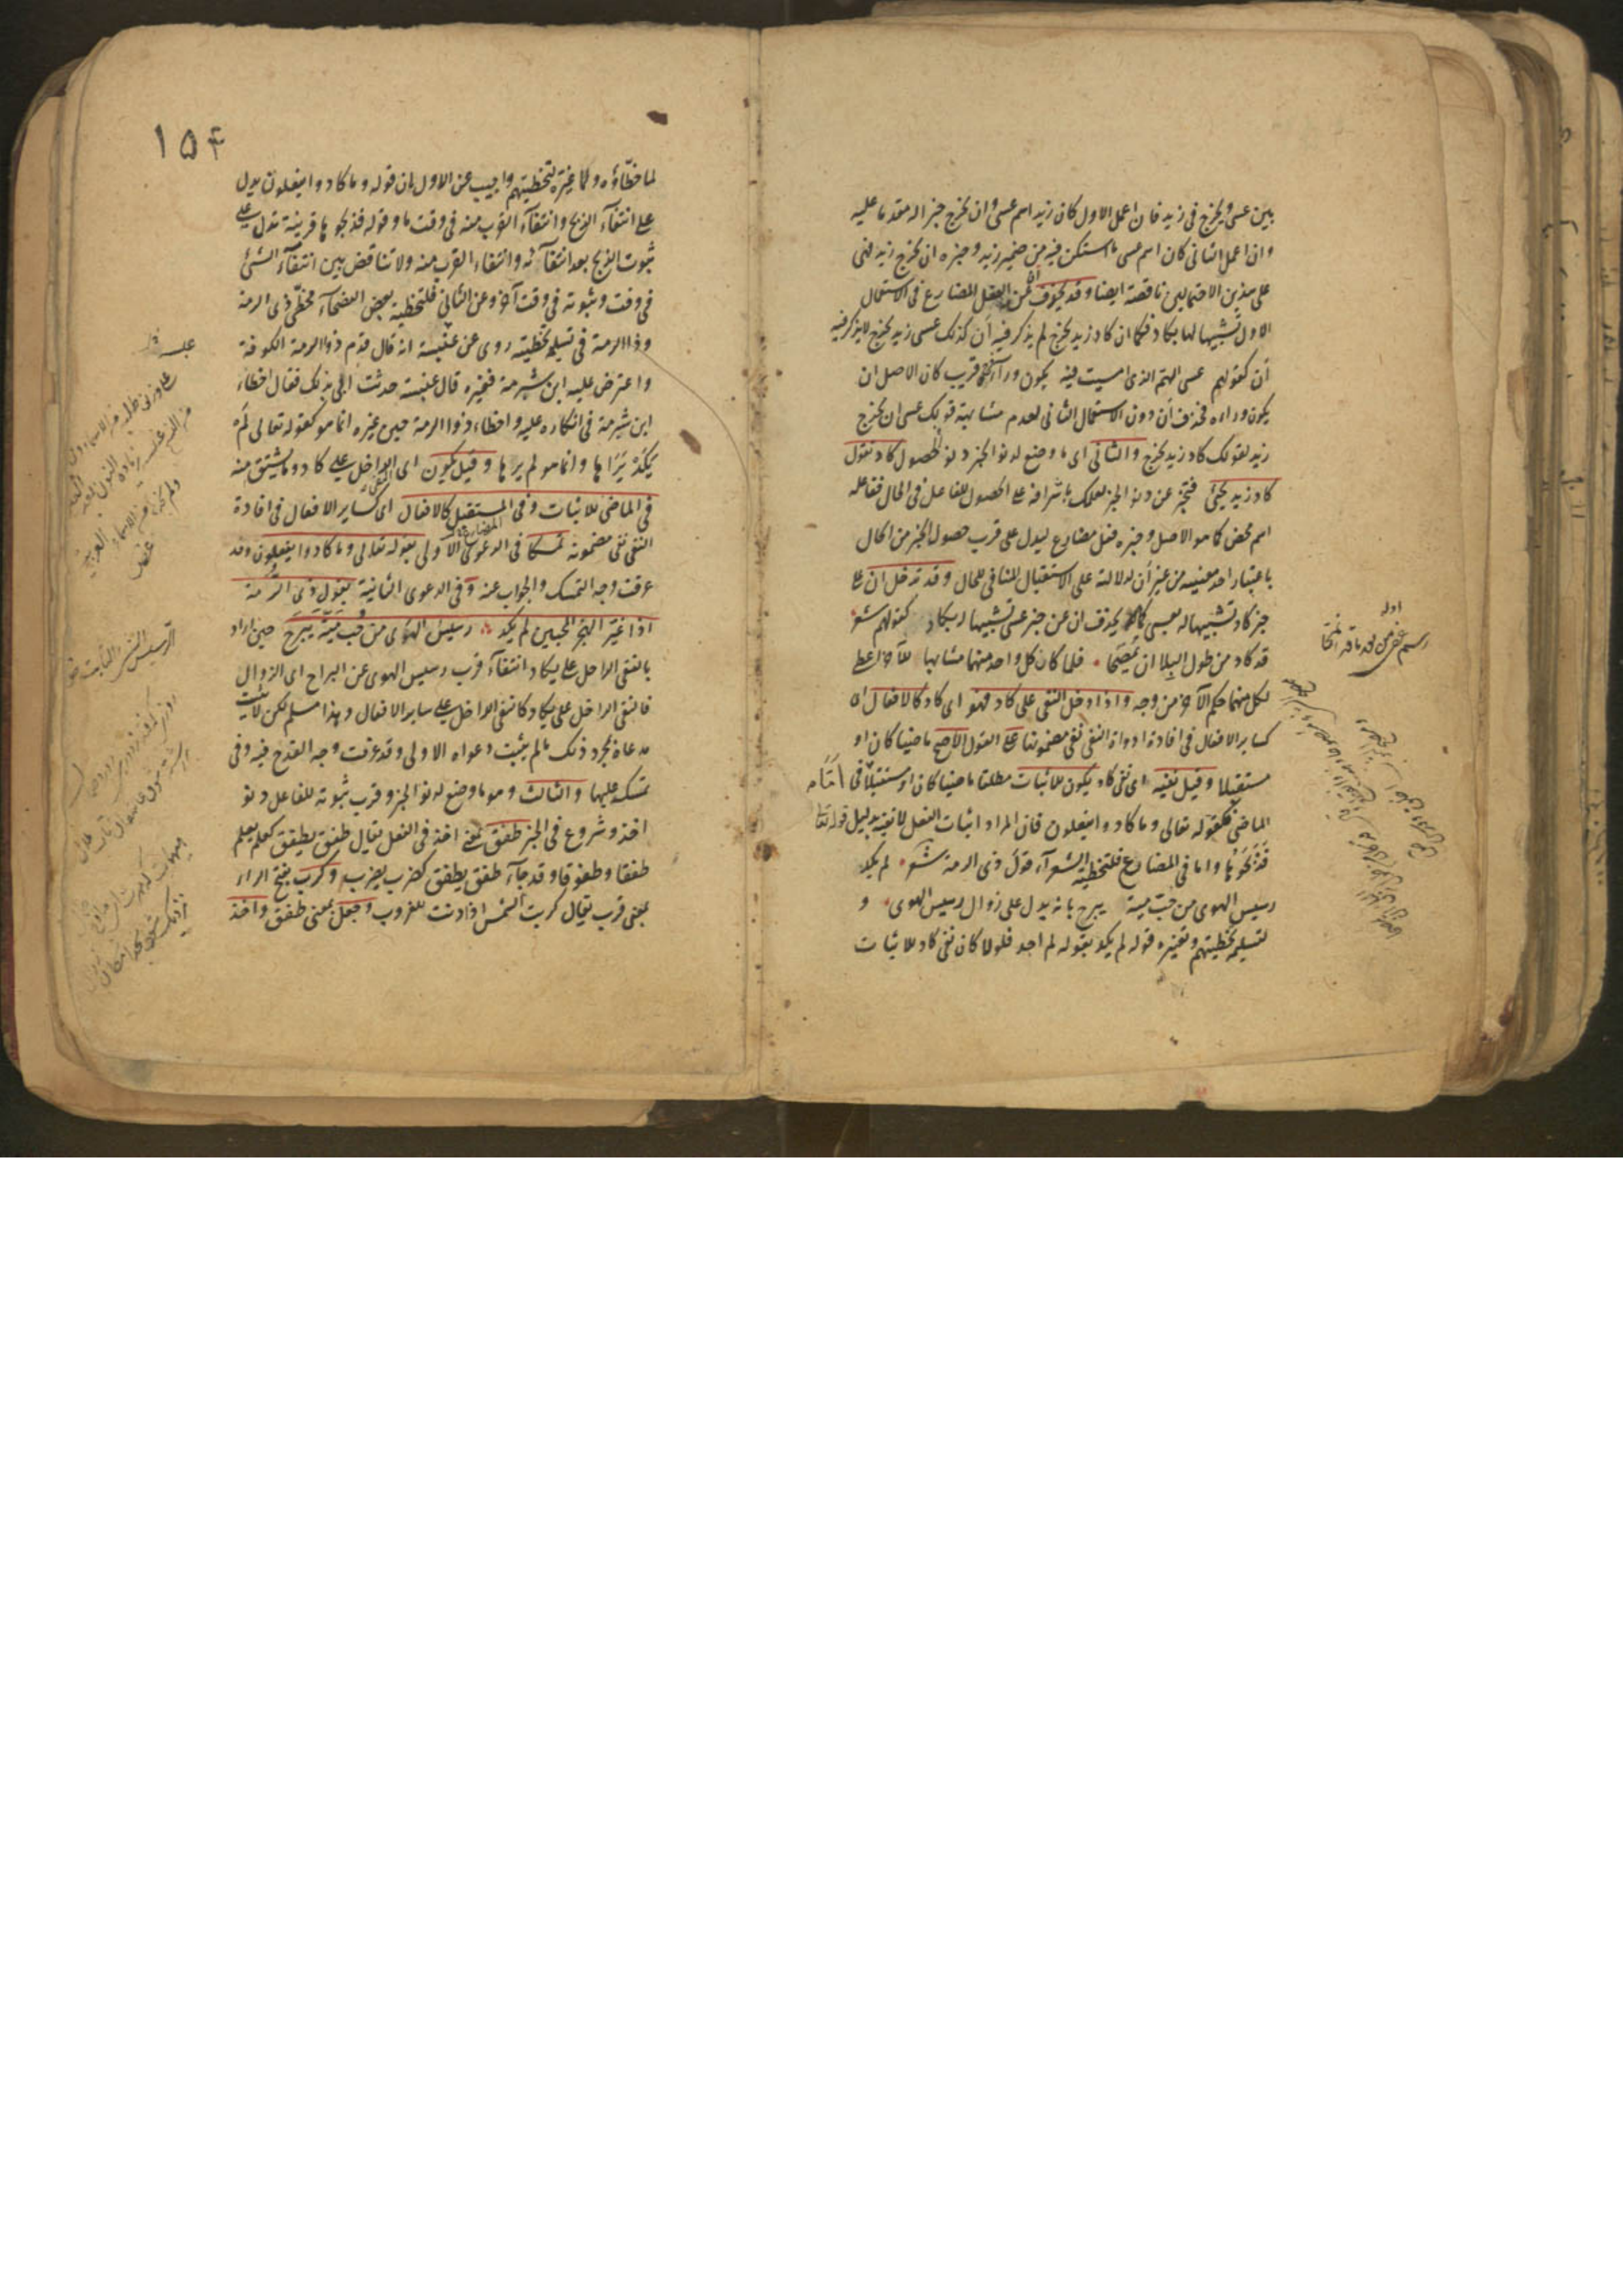 بين عسى ويخرج في زيد فان اعمل الاول كان زيد اسم عسى وان يخرج خبرا له مقدما عليه
وان اعمل الثاني كان اسم عسى ما استكن فيه من ضمير زيد وخبره ان يخرج زيد فهي
على هذين الاحتمالين ناقصة ايضا وقد يحذف ان عن الفعل المضارع في الاستعمال
الاول تشبيها لها بكاد فكما ان كاد زيد يخرج لم يذكر فيه أن كذلك عسى زيد يخرج لا يذكر فيه
أن كقولهم عسى الهم الذي امسيت فيه يكون ورآءه فرج قريب كان الاصل ان
يكون وراءه فحذف أن دون الاستعمال الثاني لعدم مشابهة قولك عسى ان يخرج
زيد لقولك كاد زيد يخرج والثاني اى ما وضع لدنو الخبر دنو الحصول كاد تقول
كاد زيد يجئ فتخبر عن دنو الخبر لعلمك باشرافه على الحصول للفاعل في الحال ففاعله
اسم محض كما هو الاصل وخبره فعل مضارع ليدل على قرب حصول الخبر من الحال
باعتبار احد معنييه من غير أن لدلالته على الاستقبال المنافي للحال وقد تدخل ان على
خبر كاد تشبيها له بعسى كما يحذف ان عن خبر عسى تشبيها له بكاد كقولهم شعر
قد كاد من طول البلا ان يمصحا فلما كان كل واحد منهما مشابها للآخر اعطى
لكل منهما حكم الآخر من وجه واذا دخل النفي على كاد فهو اى كاد كالافعال اى
كساير الافعال في افادة ادواة النفي نفي مضمونها على القول الاصح ماضيا كان او
مستقبلا وقيل نفيه اى نفي كاد يكون للاثبات مطلقا ماضيا كان او مستقبلا اما في
الماضي فكقوله تعالى وما كادوا يفعلون فان المراد اثبات الفعل لا نفيه بدليل قوله تعا
فَذَبَحُوهَا واما في المضارع فلتخطئة الشعرآء قول ذي الرمة شعر لم يكد
رسيس الهوى من حب مية يبرح بانه يدل على زوال رسيس الهوى و
لتسليمه تخطيتهم وتغييره قوله لم يكد بقوله لم اجد فلولا كان نفي كاد للاثبات
١٥٤
لما خطّاؤه ولما غيّره لتخطيتهم واجيب عن الاول بان قوله وما كادوا يفعلون يدل
على انتفآء الذبح وانتفآء القرب منه في وقت ما وقوله فذبحوها قرينة تدل على
ثبوت الذبح بعد انتفآئه وانتفاء القرب منه ولا تناقض بين انتفآء الشئ
في وقت وثبوته في وقت آخر وعن الثاني فلتخطية بعض الفصحآء مخطئ ذي الرمة
وذا الرمة في تسليمه تخطيته روى عن عنبسة انه قال قدم ذو الرمة الكوفة
واعترض عليه ابن شبرمة فغيره قال عنبسة حدثت ابي بذلك فقال اخطاء
ابن شبرمة في انكاره عليه واخطاء ذو الرمة حين غيره انما هو كقوله تعالى لَمْ
يَكَدْ يَرَاهَا وانما هو لم يرها وقيل يكون اى النفي الداخل على كاد وما يشتق منه
في الماضي للاثبات وفي المستقبل كالافعال اى كساير الافعال في افادة
النفي نفي مضمونه تمسكا في الدعوى الاولى بقوله تعالى وما كادوا يفعلون وقد
عرفت وجه التمسك والجواب عنه وفي الدعوى الثانية بقول ذي الرّمة
اذا غيّر الهجر المحبين لم يكد رسيس الهوى من حب مية يبرح حين اراد
بالنفي الداخل على يكاد انتفآء قرب رسيس الهوى عن البراح اى الزوال
فالنفي الداخل على يكاد كالنفي الداخل على ساير الافعال وهذا مسلم لكن لا يثبت
مدعاه بمجرد ذلك ما لم يثبت دعواه الاولى وقد عرفت وجه القدح فيه وفي
تمسك عليها والثالث وهو ما وضع لدنو الخبر وقرب ثبوته للفاعل دنو
اخذ وشروع في الخبر طفق بمعنى اخذ في الفعل يقال طفق يطفق كعلم يعلم
طفقا وطفوقا وقد جآء طفق يطفق كضرب يضرب وكرب بفتح الراء
بمعنى قرب يقال كربت الشمس اذا دنت للغروب وجعل بمعنى طفق واخذ